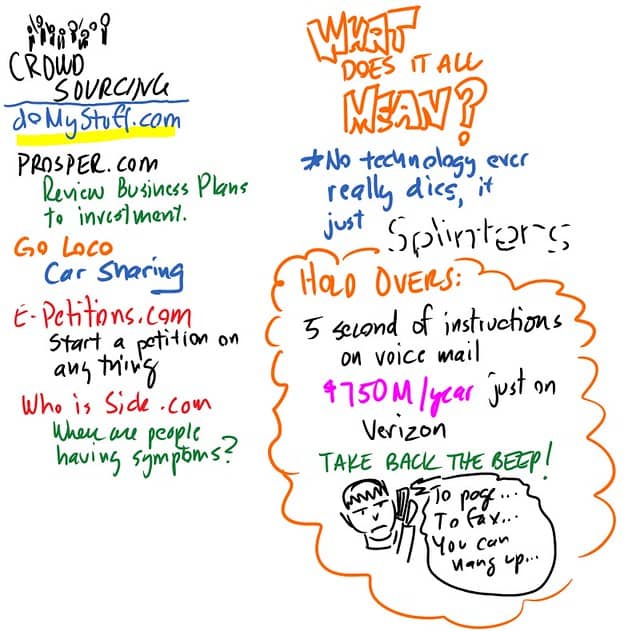 CROWD
SOURCING
doMyStuff.com
PROSPER.com
Review Business Plans
to investment.
GO LOCO
Car Sharing
E-Petitions.com
Start a petition on
any thing
Who is Sick.com
Where are people
having symptoms?
WHAT
DOES IT ALL
MEAN?
*No technology ever
really dies, it
just Splinters
HOLD OVERS:
5 second of instructions
on voice mail
$750M/year just on
Verizon
TAKE BACK THE BEEP!
To page...
To fax...
You can
hang up...